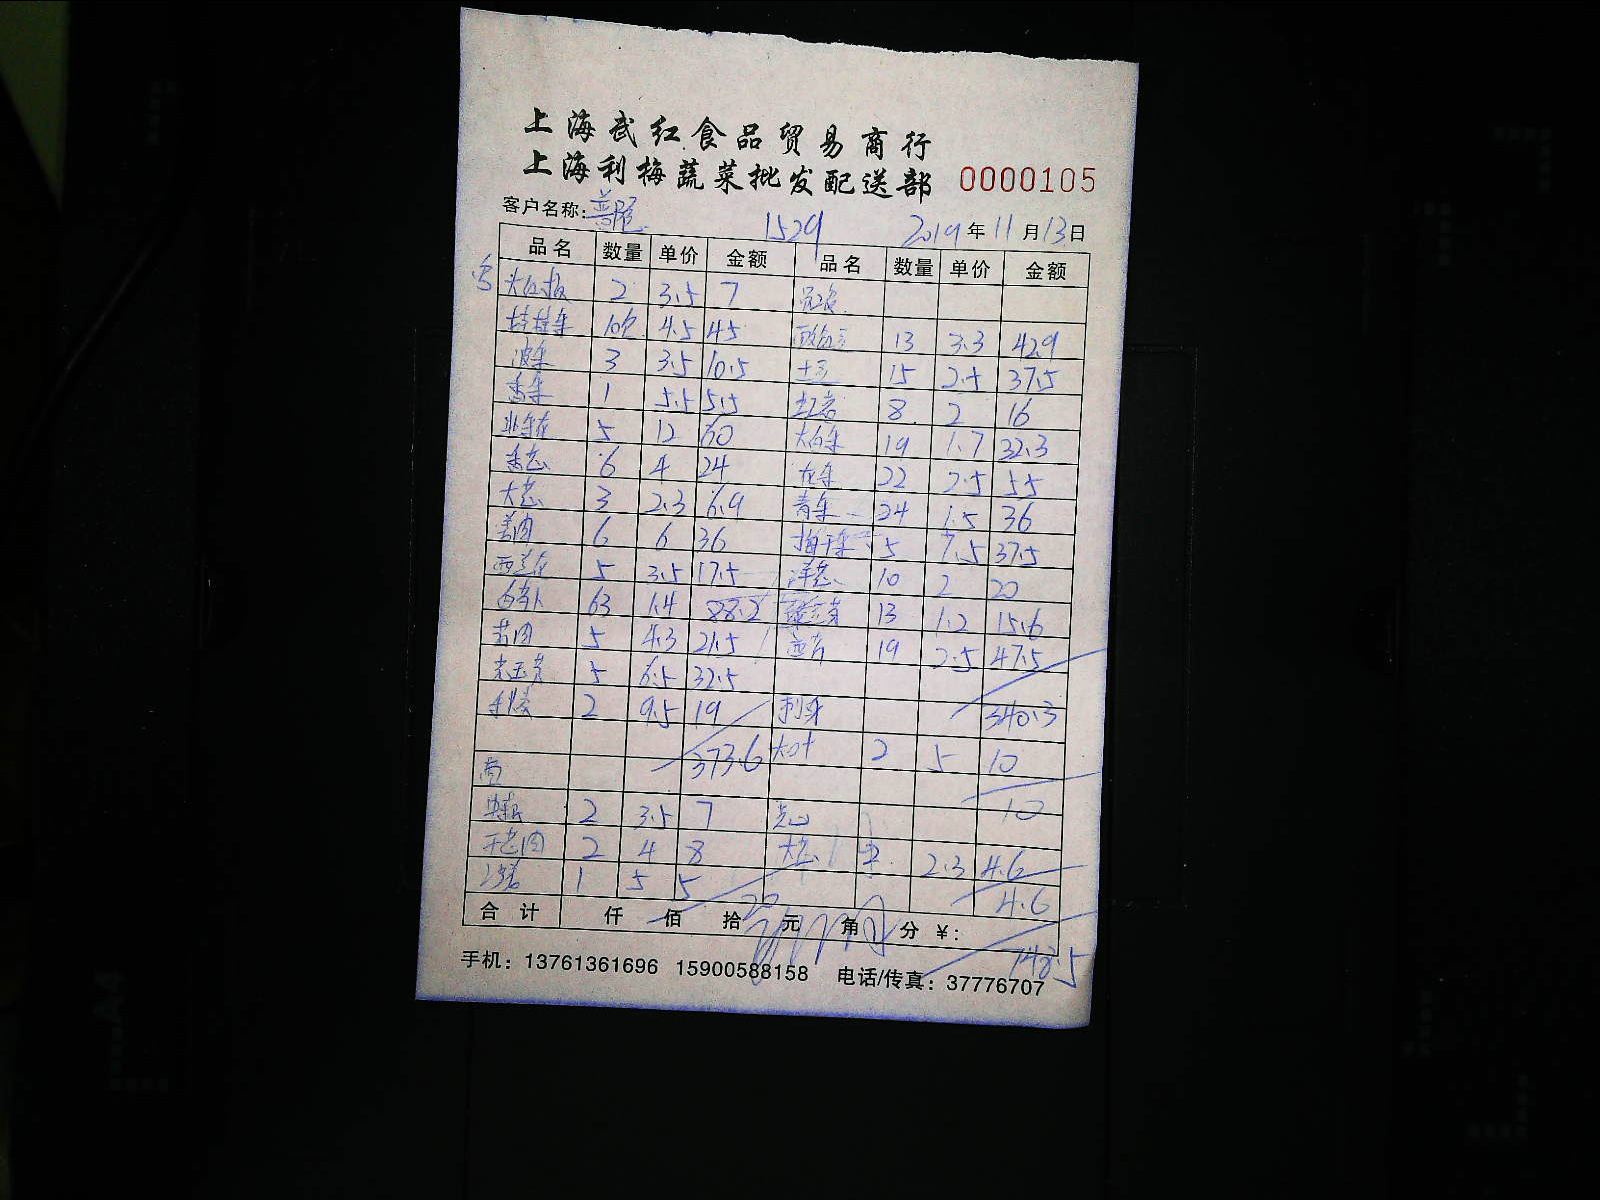 上海武红食品贸易商行
上海利梅蔬菜批发配送部 0000105
客户名称: 1529 2019年11月13日
品名 数量 单价 金额 品名 数量 单价 金额
2 3.5 7
4.5 45 13 3.3 42.9
菠菜 3 3.5 10.5 土豆 15 2.5 37.5
香菜 1 5.5 5.5 8 2 16
韭菜花 5 12 60 大白菜 19 1.7 32.3
香葱 6 4 24 花菜 22 2.5 55
大葱 3 2.3 6.9 青菜 24 1.5 36
姜肉 6 6 36 梅干菜 5 7.5 37.5
西兰花 5 3.5 17.5 洋葱 10 2 20
白萝卜 63 1.4 88.2 绿豆芽 13 1.2 15.6
5 4.3 21.5 19 2.5 47.5
5 6.5 32.5
2 9.5 19 刺身 340.3
373.6 大叶 2 5 10
10
2 3.5 7 点心
干葱肉 2 4 8 大葱 2 2.3 4.6
1 5 5 4.6
20
合计 仟 佰 拾 元 角 分 ¥: 748.5
手机: 13761361696 15900588158 电话/传真: 37776707